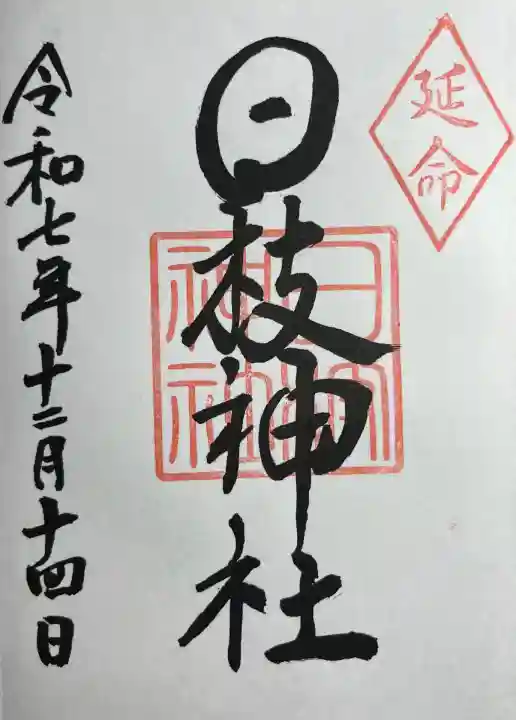 延命
日枝神社
令和七年十二月十四日